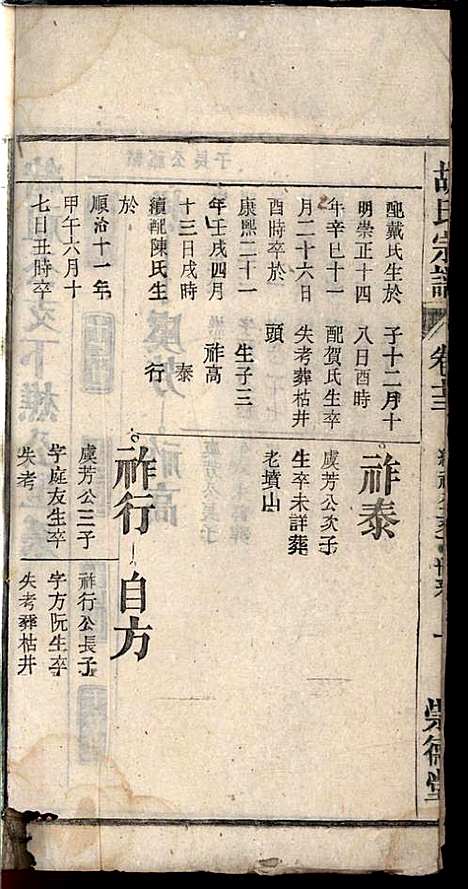 胡氏宗譜
卷十三
崇德堂
配戴氏生於
明崇正十四
年辛巳十一
月二十六日
酉時卒於
康熙二十一
年壬戌四月
十三日戌時
續配陳氏生
於
順治十一年
甲午六月十
七日丑時卒
子十二月十
八日酉時
配賀氏生卒
失考葬枯井
頭
生子三
祚高
泰
行
祚泰
虞芳公次子
生卒未詳葬
老墳山
祚行
虞芳公三子
字庭友生卒
失考
自方
祚行公長子
字方阮生卒
失考葬枯井